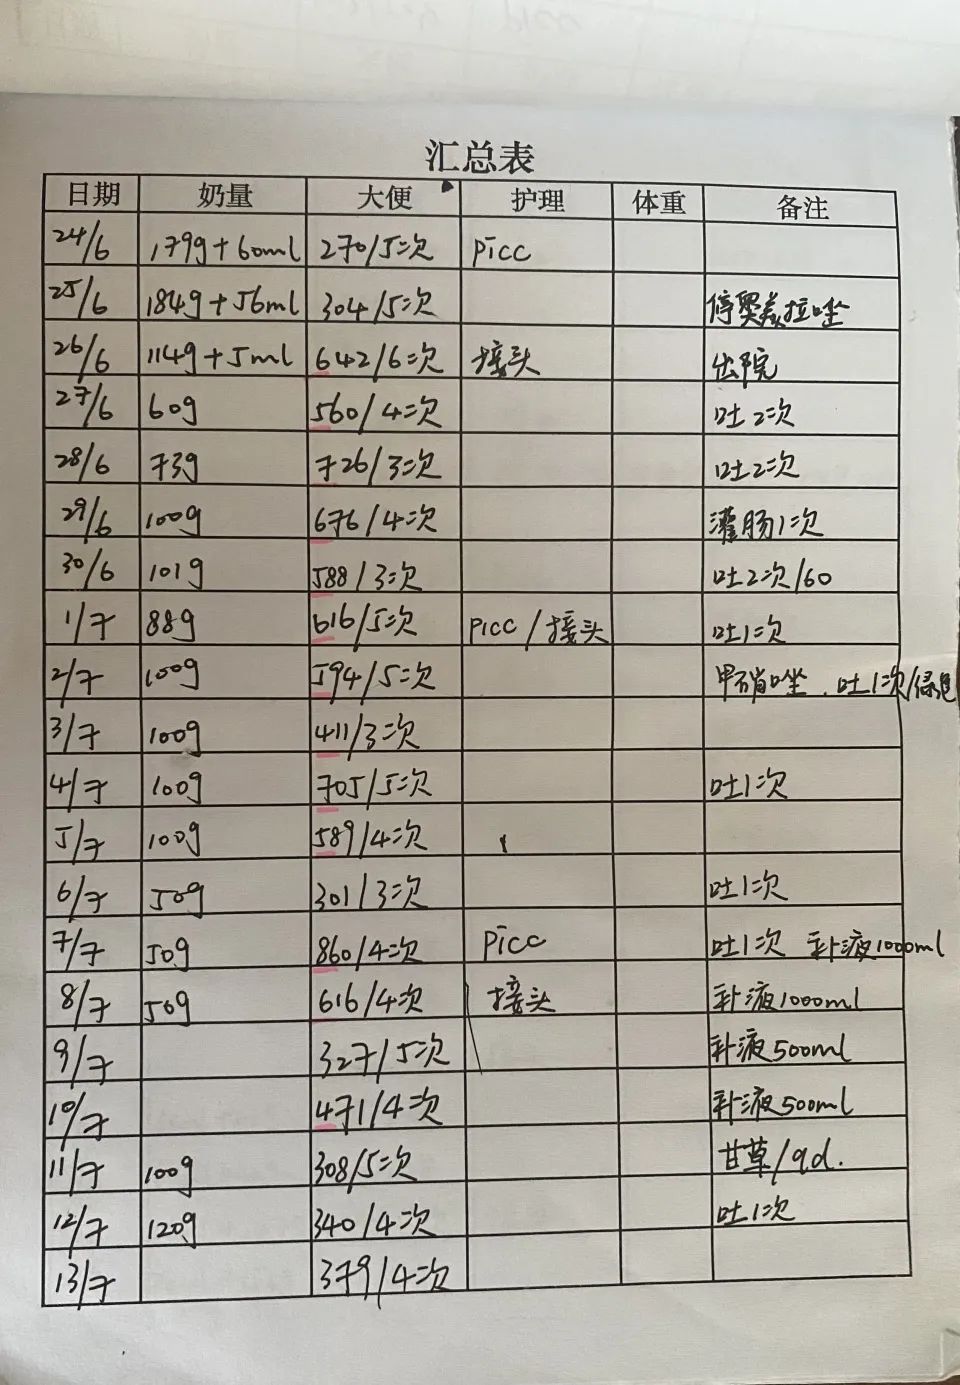 汇总表
日期 奶量 大便 护理 体重 备注
24/6 179g+60ml 270/5次 picc
25/6 184g+56ml 304/5次 停奥美拉唑
26/6 114g+5ml 642/6次 接头 出院
27/6 60g 560/4次 吐2次
28/6 73g 726/3次 吐2次
29/6 100g 676/4次 灌肠1次
30/6 101g 588/3次 吐2次/60
1/7 88g 616/5次 picc/接头 吐1次
2/7 100g 594/5次 甲硝唑.吐1次/绿色
3/7 100g 411/3次
4/7 100g 705/5次 吐1次
5/7 100g 589/4次
6/7 50g 301/3次 吐1次
7/7 50g 860/4次 picc 吐1次 补液1000ml
8/7 50g 616/4次 接头 补液1000ml
9/7 327/5次 补液500ml
10/7 471/4次 补液500ml
11/7 100g 308/5次 甘草/qd.
12/7 120g 340/4次 吐1次
13/7 379/4次